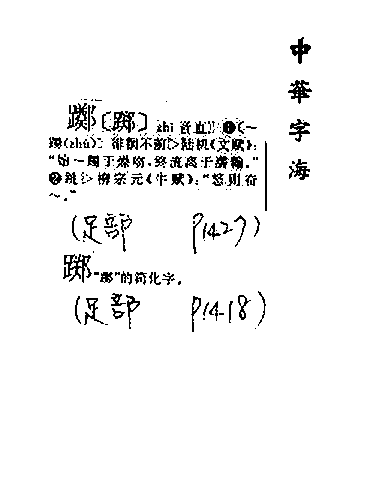 中華字海
躑〔踯〕zhí 音直。❶〔~
躅(zhú)〕徘徊不前▷陆机《文赋》:
“始~躅于燥吻,终流离于濡翰。”
❷跳▷柳宗元《牛赋》:“怒则奋
~。”
(足部 P1427)
踯“躑”的简化字。
(足部 P1418)